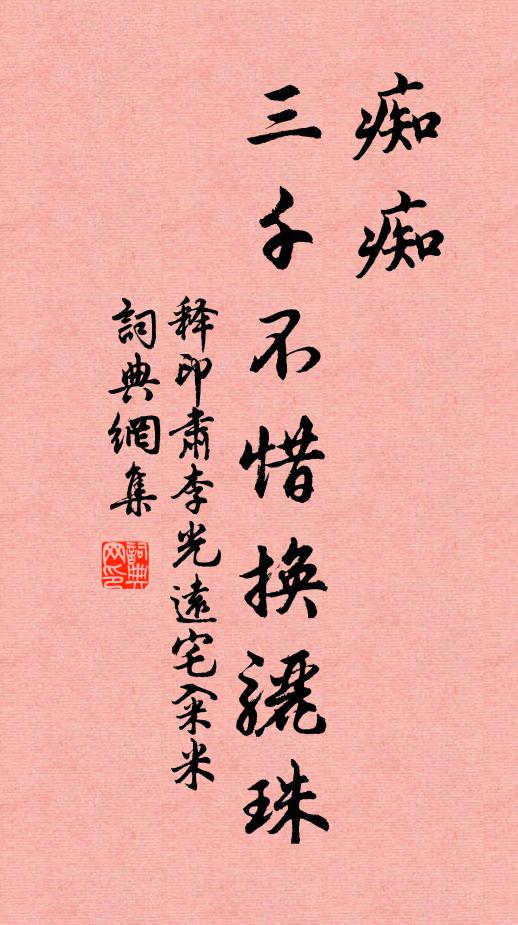 痴痴
三千不惜換驪珠
释印肅李光遠宅籴米
詞典網集
詞典
网印